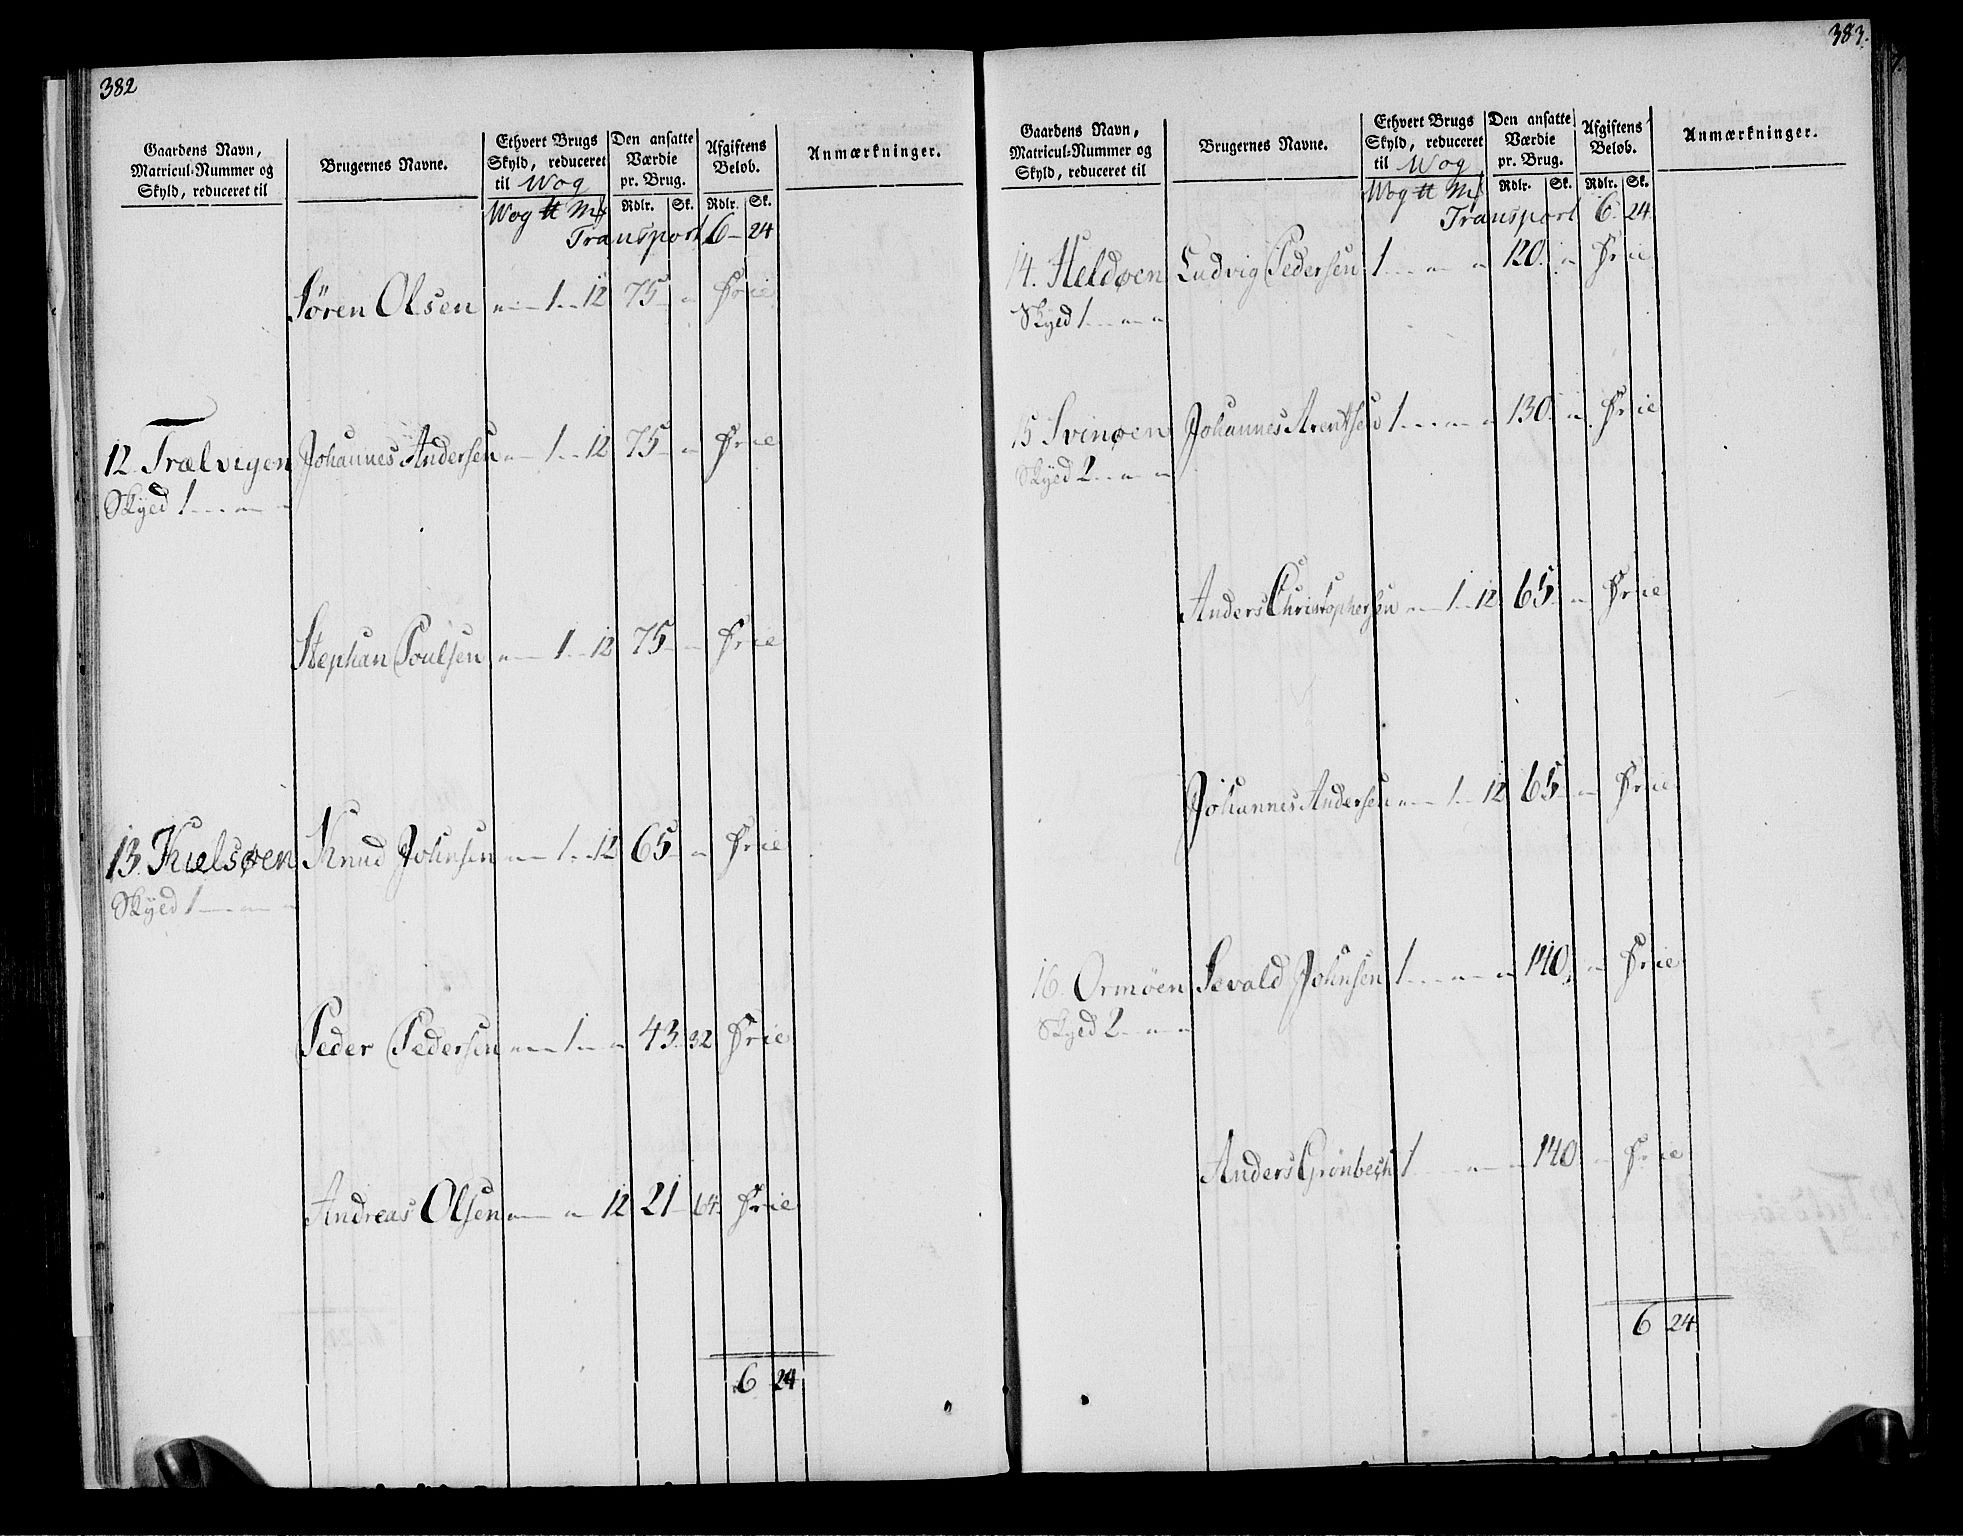 382
Gaardens Navn, Matricul-Nummer og Skyld, reduceret til
Brugernes Navne.
Ethvert Brugs Skyld, reduceret til Wog
Den ansatte Værdie pr. Brug.
Afgiftens Beløb.
Anmærkninger.
Wog ℔ Mk Rdlr. Sk. Rdlr. Sk.
Transport 6 24
Sören Olsen „ 1 12 75 „ Frie
12 Trælvigen Johannes Andersen „ 1 12 75 „ Frie
Skyld 1 „ „
Stephan Poulsen „ 1 12 75 „ Frie
13. Kielsøen Knud Johnsen „ 1 12 65 „ Frie
Skyld 1 „ „
Peder Pedersen „ 1 „ 43 32 Frie
Andreas Olsen „ „ 12 21 64 Frie
6 24
383.
Gaardens Navn, Matricul-Nummer og Skyld, reduceret til
Brugernes Navne.
Ethvert Brugs Skyld, reduceret til Wog
Den ansatte Værdie pr. Brug.
Afgiftens Beløb.
Anmærkninger.
Wog ℔ Mk Rdlr. Sk. Rdlr. Sk.
Transport 6 24
14. Heldøen Ludvig Pedersen 1 „ „ 120 „ Frie
Skyld 1 „ „
15 Svinøen Johannes Arentsen 1 „ „ 130 „ Frie
Skyld 2 „ „
Anders Christophersen „ 1 12 65 „ Frie
Johannes Andersen „ 1 12 65 „ Frie
16 Ormøen Sevald Johnsen 1 „ „ 140 „ Frie
Skyld 2 „ „
Anders Grönbech 1 „ „ 140 „ Frie
6 24